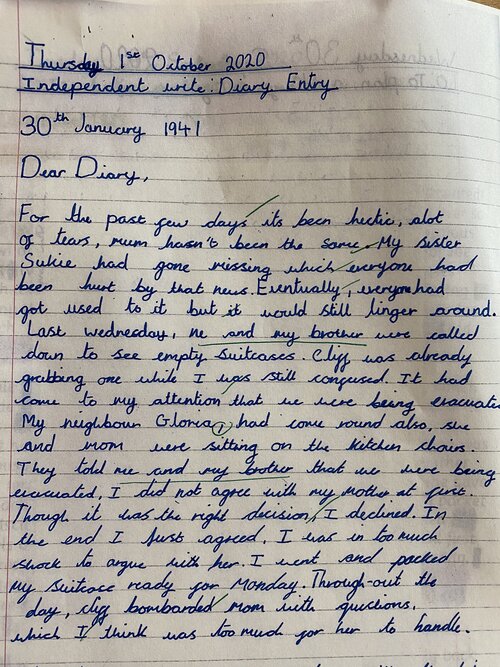 Thursday 1st October 2020
Independent write: Diary Entry
30th January 1941
Dear Diary,
For the past few days its been hectic, alot
of tears, mum hasn't been the same. My sister
Sukie had gone missing which everyone had
been hurt by that news. Eventually, everyone had
got used to it but it would still linger around.
Last wednesday, me and my brother were called
down to see empty suitcases. Cliff was already
grabbing one while I was still confused. It had
come to my attention that we were being evacuated
My neighbour Gloria, had come round also, she
and mom were sitting on the kitchen chairs.
They told me and my brother that we were being
evacuated, I did not agree with my mother at first.
Though it was the right decision, I declined. In
the end I just agreed, I was in too much
shock to argue with her. I went and packed
my suitcase ready for Monday. Through-out the
day, cliff bombarded mom with questions,
which I think was too much for her to handle.